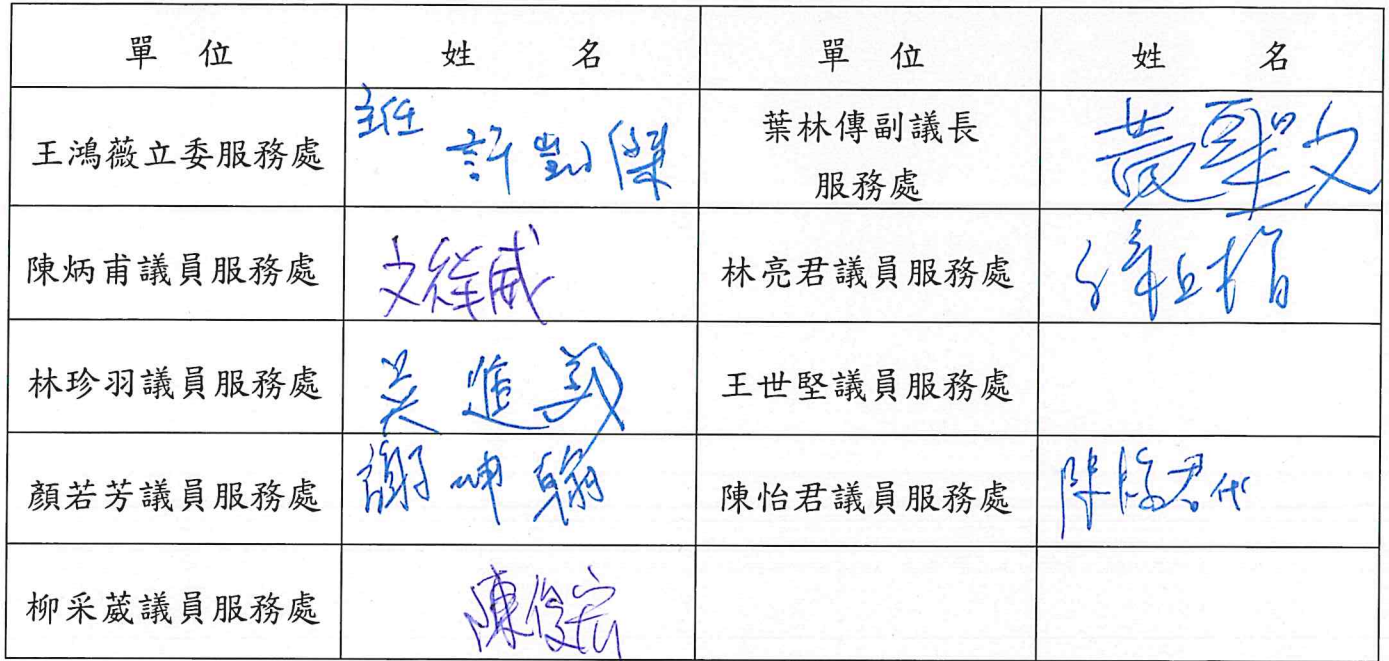 單 位 姓 名 單 位 姓 名
王鴻薇立委服務處 主任 許凱傑 葉林傳副議長
服務處 黃聖文
陳炳甫議員服務處 林亮君議員服務處
林珍羽議員服務處 吳進義 王世堅議員服務處
顏若芳議員服務處 謝坤翰 陳怡君議員服務處 陳怡君代
柳采葳議員服務處 陳俊宏